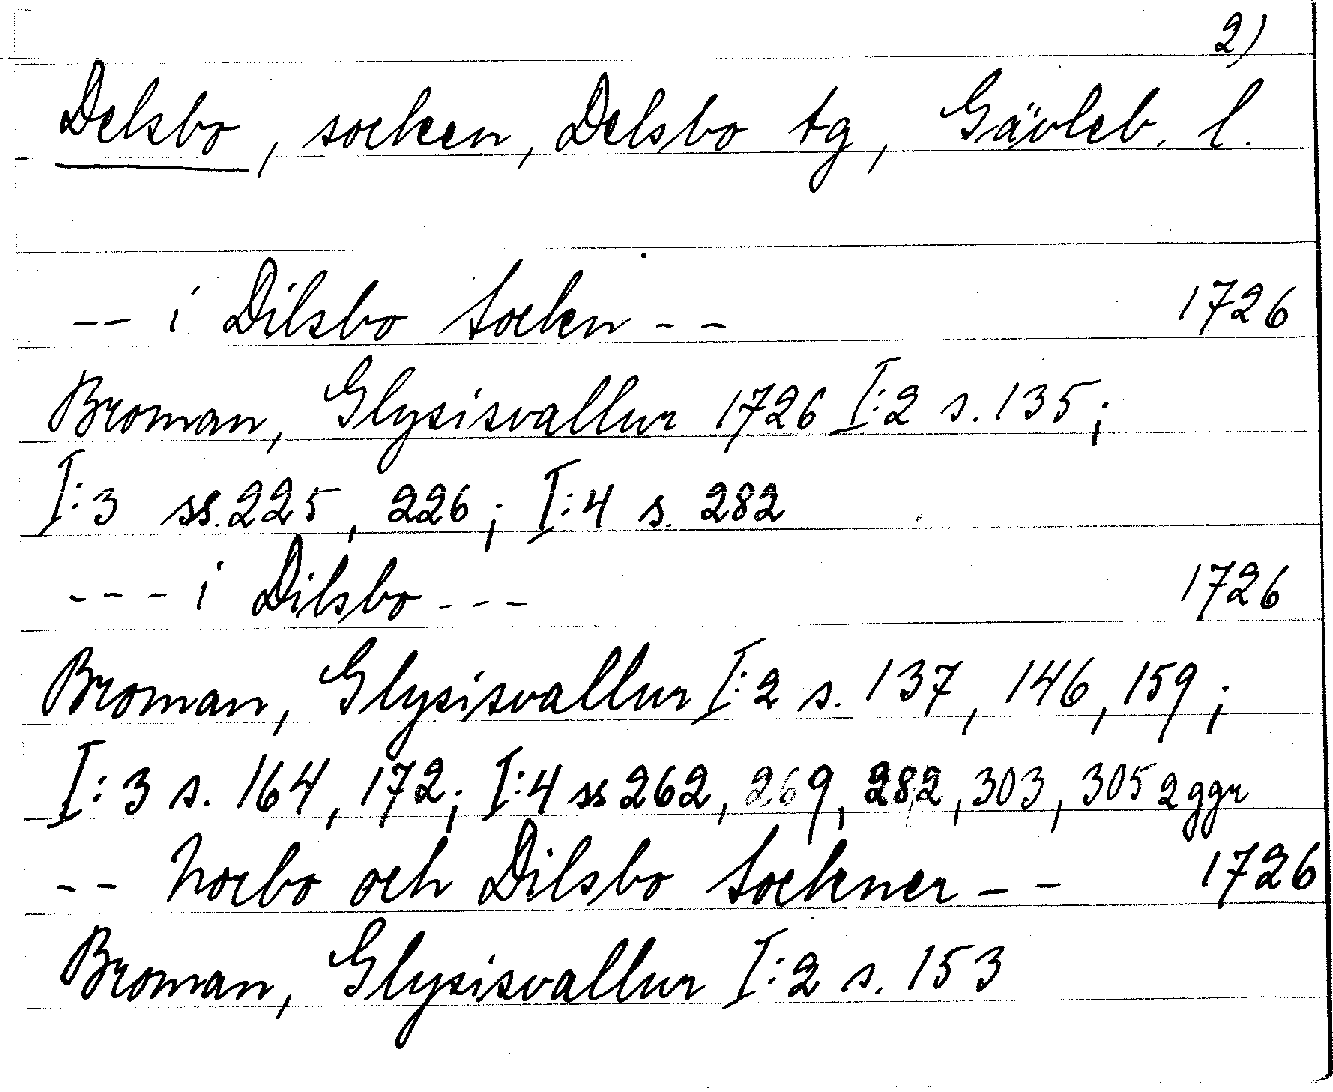 2)
Delsbo, socken, Delsbo tg, Gävleb. l.
-- i Dilsbo Socken -- 1726
Broman, Glysisvallur 1726 I:2 s. 135;
I:3 ss. 225, 226; I:4 s. 282
--- i Dilsbo --- 1726
Broman, Glysisvallur I:2 s. 137, 146, 159;
I:3 s. 164, 172; I:4 ss 262, 269, 282, 303, 305 2 ggr
-- Norbo och Dilsbo Socknar -- 1726
Broman, Glysisvallur I:2 s. 153